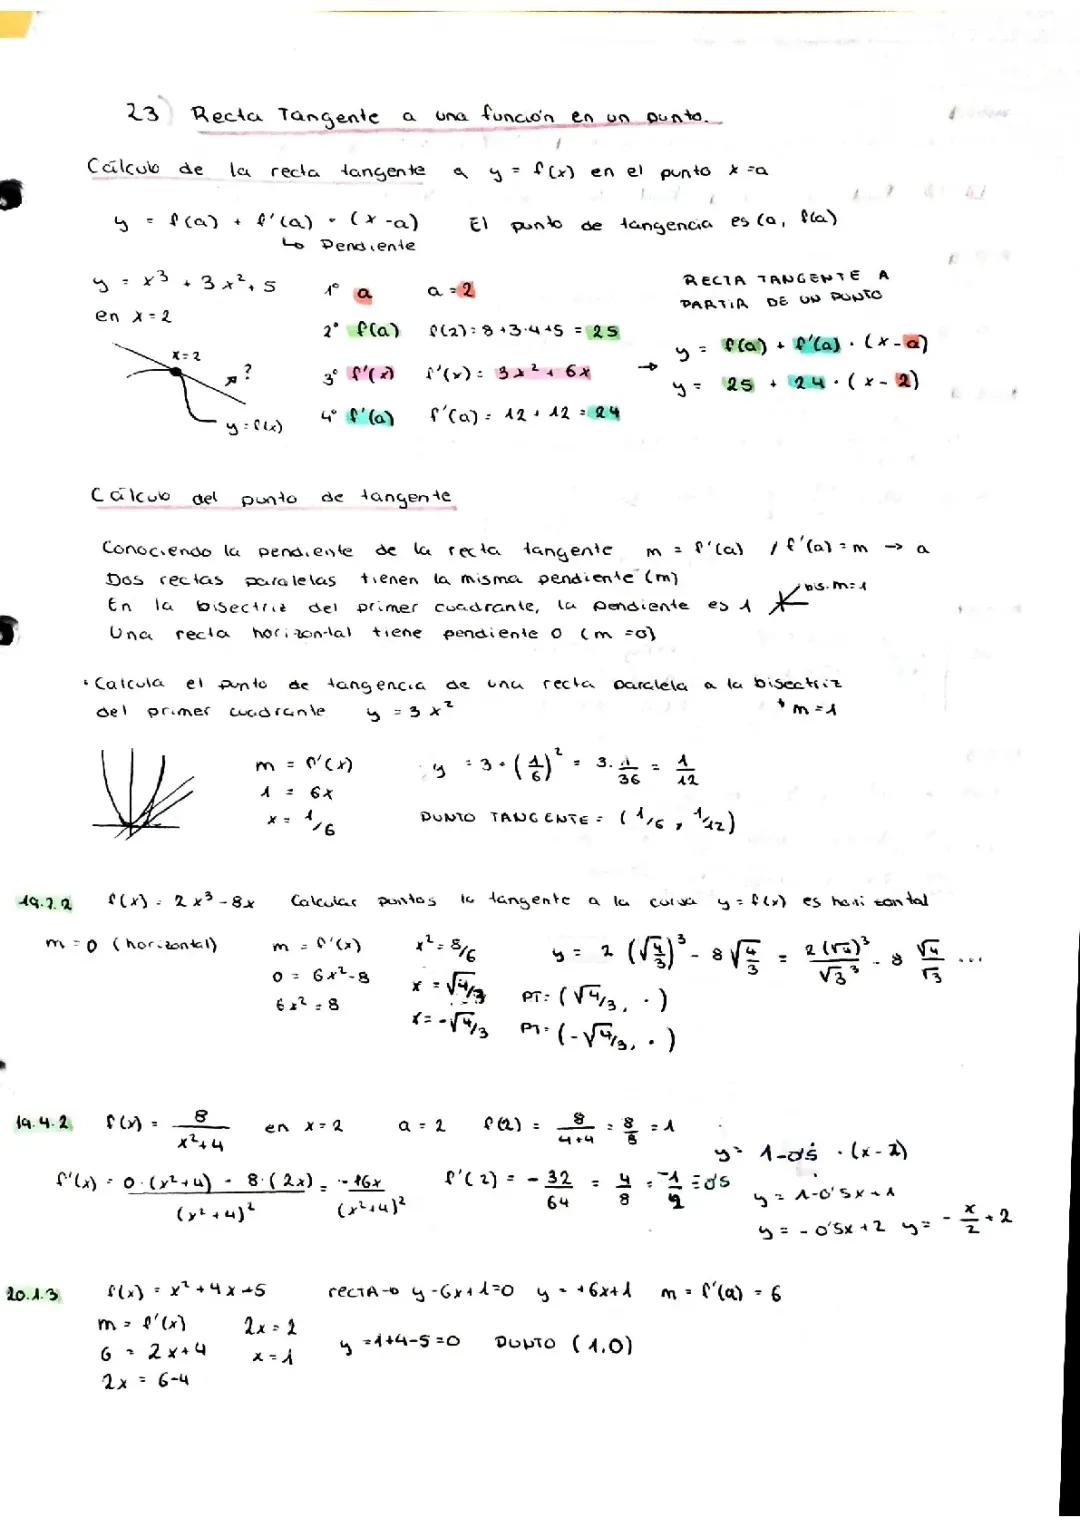 23) Recta Tangente a una función en un punto.
Cálculo de la recta tangente a y = f(x) en el punto x=a
y = f(a) + f'(a) · (x-a)   El punto de tangencia es (a, f(a))
↳ Pendiente
y = x³ + 3x² + 5   1º a   a = 2
en x = 2   2º f(a)   f(2) = 8 + 3·4 + 5 = 25
x = 2   ?   3º f'(x)   f'(x) = 3x² + 6x
y = f(x)   4º f'(a)   f'(a) = 12 + 12 = 24
RECTA TANGENTE A
PARTIR DE UN PUNTO
→ y = f(a) + f'(a) · (x-a)
y = 25 + 24 · (x-2)
Cálculo del punto de tangente
Conociendo la pendiente de la recta tangente m = f'(a) / f'(a) = m → a
Dos rectas paralelas tienen la misma pendiente (m)
En la bisectriz del primer cuadrante, la pendiente es 1   bis. m=1
Una recta horizontal tiene pendiente 0 (m=0)
· Calcula el punto de tangencia de una recta paralela a la bisectriz
del primer cuadrante   y = 3x²   m=1
m = f'(x)   y = 3·(1/6)² = 3·1/36 = 1/12
1 = 6x
x = 1/6   PUNTO TANGENTE = (1/6, 1/12)
19.2.2   f(x) = 2x³-8x   Calcular puntos la tangente a la curva y = f(x) es horizontal
m = 0 (horizontal)   m = f'(x)   x² = 8/6   y = 2(√4/3)³ - 8√4/3 = 2(√4)³/√3³ - 8 √4/√3 ...
0 = 6x²-8   x = √4/3   PT: (√4/3, ·)
6x² = 8   x = -√4/3   PT: (-√4/3, ·)
19.4.2   f(x) = 8/x²+4   en x = 2   a = 2   f(2) = 8/4+4 = 8/8 = 1
y = 1-0'5 · (x-2)
f'(x) = 0·(x²+4) - 8·(2x)/(x²+4)² = -16x/(x²+4)²   f'(2) = -32/64 = 4/8 = -1/2 = 0'5
y = 1-0'5x+1
y = -0'5x+2   y = -x/2+2
20.1.3   f(x) = x²+4x-5   RECTA→ y-6x+1=0   y = +6x+1   m = f'(a) = 6
m = f'(x)   2x = 2
6 = 2x+4   x = 1   y = 1+4-5 = 0   PUNTO (1,0)
2x = 6-4